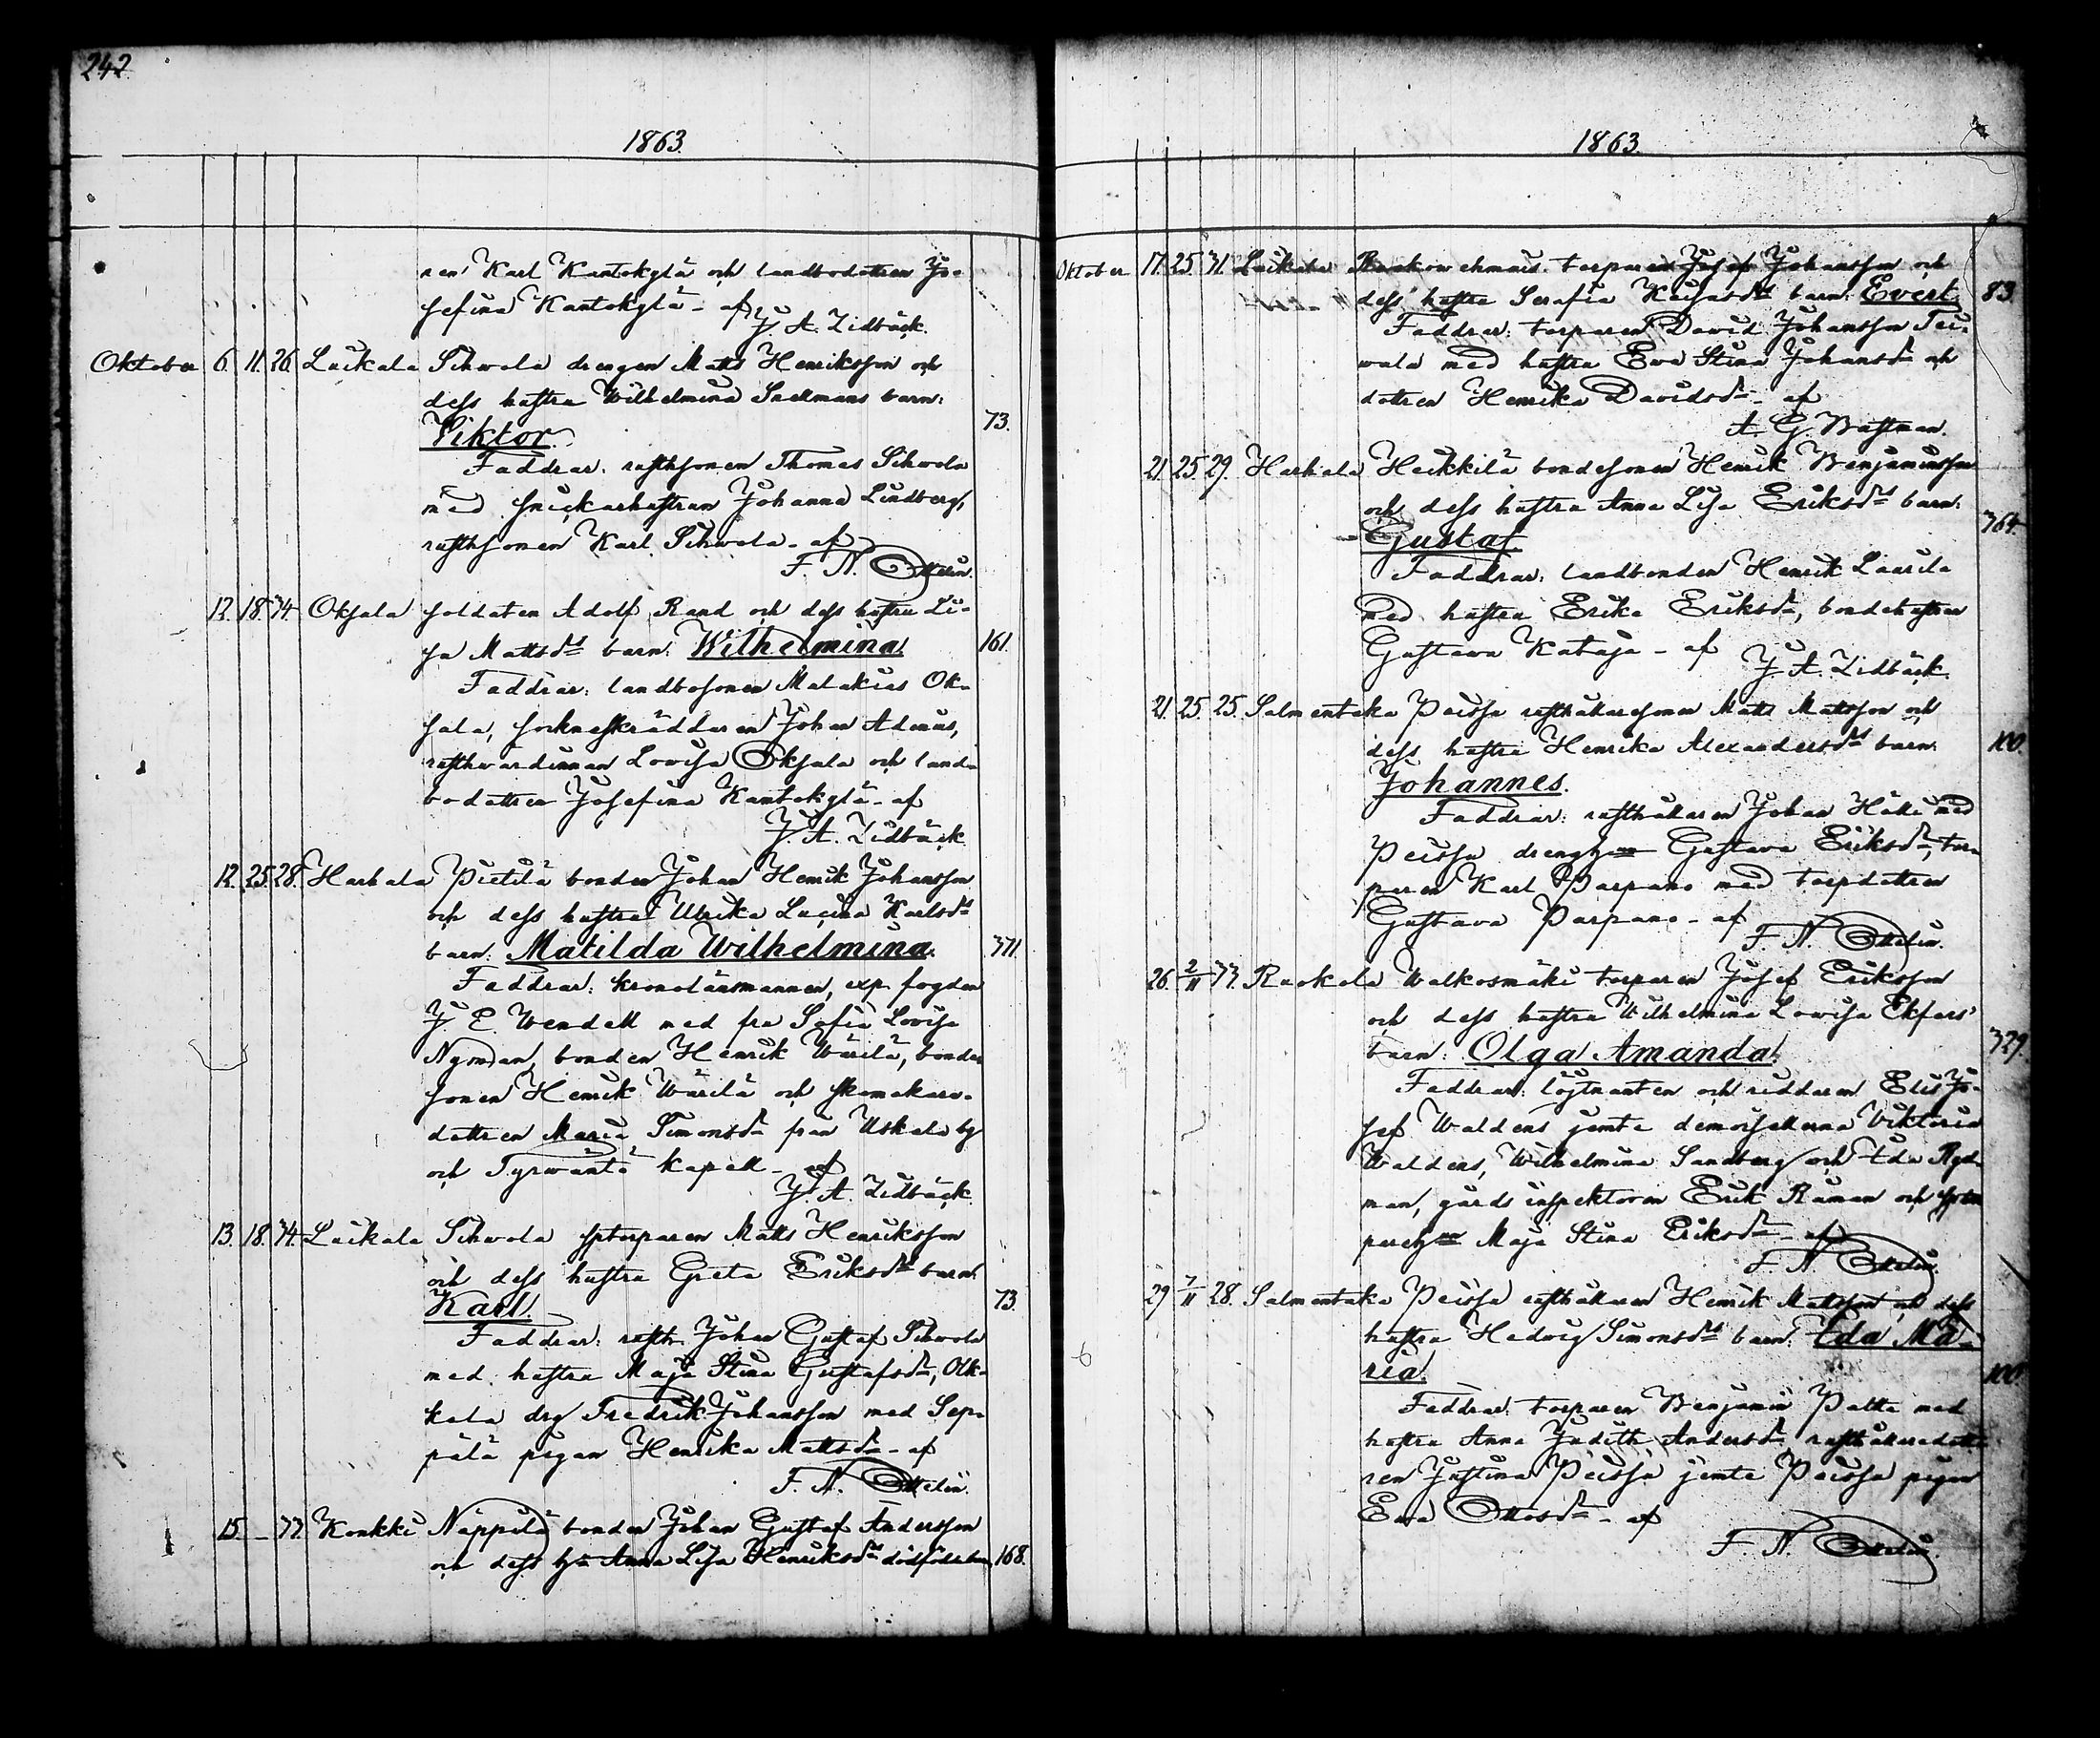 242.
1863.
ren Karl Kantokylä och landbodottren Jo-
sefina Kantokylä - af
J. A. Lidbäck.
Oktober 6. 11. 26. Laikala Sihvola drengen Matts Henriksson och
dess hustru Wilhelmina Snellmans barn:
Viktor. 73.
Faddrar: rusthsonen Thomas Sihvola
med snickarhustrun Johanna Lindberg,
rusthsonen Karl Sihvola - af
F. N. Ottelin.
12. 18. 34. Oksala soldaten Adolf Rand och dess hustru Li-
sa Mattsdrs barn: Wilhelmina. 161.
Faddrar: landbosonen Malakias Ok-
sala, sockneskräddaren Johan Adenius,
rusthwärdinnan Lovisa Oksala och land-
bodottren Josefina Kantokylä - af
J. A. Lidbäck
12. 25. 28. Harhala Pietilä bonden Johan Henrik Johansson
och dess hustru Ulrika Lucina Karlsdrs
barn: Matilda Wilhelmina. 371.
Faddrar: kronolänsmannen, exp. fogden
J. E. Wendell med fru Sofia Lovisa
Nyman, bonden Henrik Wärilä, bonde
sonen Henrik Wärilä och skomakare-
dottren Maria Simonsdr från Uskela by
och Tyrwäntö kapell - af
J. A. Lidbäck.
13. 18. 34. Laikala Sihvola sptorparen Matts Henriksson
och dess hustru Greta Eriksdrs barn:
Karl. 73.
Faddrar: rusth. Johan Gustaf Sihvola
med hustru Maja Stina Gustafsdr, Olk-
kala drg Fredrik Johansson med Sep-
pälä pigan Henrika Mattsdr - af
F. N. Ottelin.
15. - 33. Konkki Näppilä bonden Johan Gustaf Andersson
och dess hu Anna Lisa Henriksdrs dödfödda barn 168.
1863.
Oktober 17. 25. 31. Laikala torparen Josef Johansson och
dess hustru Serafia barn: Evert. 83.
Faddrar: torparen David Johansson Tai-
wala med hustru Ewa Stina Johansdr och
dottren Henrika Davidsdr - af
A. G. Wastman.
21. 25. 29. Harhala Heikkilä bondesonen Henrik Benjaminsson
och dess hustru Anna Lisa Eriksdrs barn:
Gustaf. 364.
Faddrar: landbonden Henrik Laurila
med hustru Erika Eriksdr, bondehustrun
Gustava Kataja - af
J. A. Lidbäck.
21. 25. 25. Salmentaka Peussa rusthållaresonen Matts Mattsson och
dess hustru Henrika Alexandersdrs barn: 100.
Johannes.
Faddrar: rusthållaren Johan Häke med
Peussa drenghn Gustava Eriksdr, tor-
paren Karl Parpano med torpdottren
Gustava Parpano - af
F. N. Ottelin.
26. 2/11 33. Ruokola Walkosmäki torparen Josef Eriksson
och dess hustru Wilhelmina Lovisa Ekfors'
barn: Olga Amanda. 329.
Faddrar: löjtnanten och riddaren Elis Jo-
sef Waldens jemte demoisellerna Viktoria
Waldens, Wilhelmina Sandberg och Eda Ryd-
man, gårds inspektoren Erik Råman och
Maja Stina Eriksdr - af
F. N. Ottelin.
29. 7/11 28. Salmentaka Peussa rusthållaren Henrik Mattsson och dess
hustru Hedvig Simonsdrs barn: Eda Ma-
ria. 100.
Faddrar: torparen Benjamin Patta med
hustru Anna Judith Andersdr rusthållaredott-
ren Justina Peussa jemte Peussa pigan
Ewa Ottosdr - af
F. N. Ottelin.